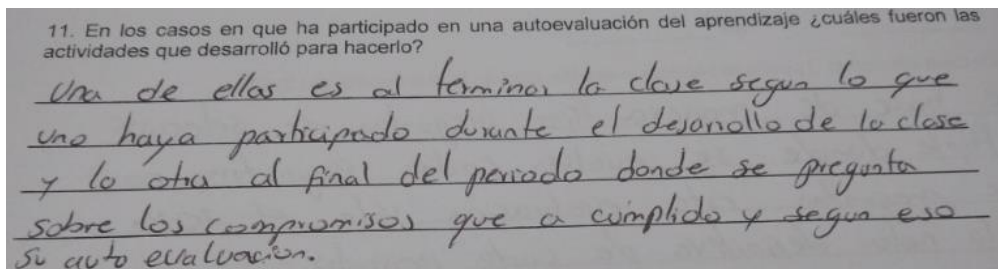 11. En los casos en que ha participado en una autoevaluación del aprendizaje ¿cuáles fueron las
actividades que desarrolló para hacerlo?
Una de ellas es al terminar la clase segun lo que
uno haya participado durante el desarrollo de la clase
y la otra al final del periodo donde se pregunta
sobre los compromisos que a cumplido y segun eso
su auto evaluación.